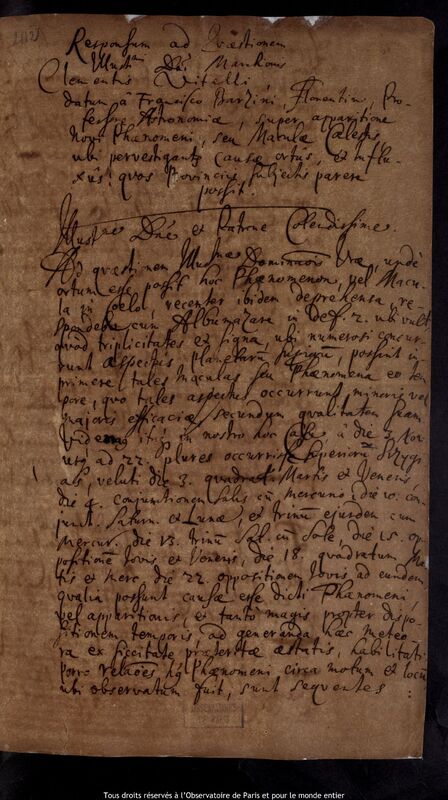 Responsum ad Quæstionem
Illust.mi Dni Marchionis
Clementis Vitelli,
datum à Francisco Barzini, Florentin, Pro-
fessore Astronomiæ, super apparitione
Novi Phænomeni, seu Maculæ Cælestis
ubi pervestigantur causæ ortus, et influ-
xus, quos Provinciis subjectis parere
possit.
Illust.me Dne et Patrone Colendissime.
Ad quæstionem Illust.mæ Dominaōis Vræ, unde
ortum esse possit hoc Phænomenon, vel Macu-
la in Coelo, recenter ibidem deprehensa, re-
spondebo cum Albumazara in Def. 2. ubi vult,
quod triplicitates et signa, ubi numerosi concur-
runt aspectus planetarum, possint im-
primere tales Maculas seu Phænomena eo tem
pore, quo tales aspectus occurrunt minoris vel
majoris efficaciæ secundum qualitatem
Videmus itaq in nostro hoc Casu à die 3. Nov
ad 22. plures occurrisse Superiorum Syzygi
as, veluti die 3. quadrat. Martis et Veneris,
die 4. conjunctionem Solis cū mercurio, die 10. con-
junct. Saturn. et Lunæ, et trinū ejusdem cum
Mercur. die 13. trinū Sat. cū Sole, die 15. op-
positionē Jovis et Veneris, die 18. quadratum Mar
tis et Merc. die 22. oppositionem Jovis ad eundem
qualia possunt causæ esse dicti Phænomeni,
vel apparitionis, et tantò magis propter dispo-
sitionem temporis, ad generanda hæc meteo-
ra ex siccitate præteritæ æstatis, habilitati
porro relaōes hq Phænomeni circa motum et locū
ubi observatum fuit, sunt sequentes:
Tous droits réservés à l'Observatoire de Paris et pour le monde entier